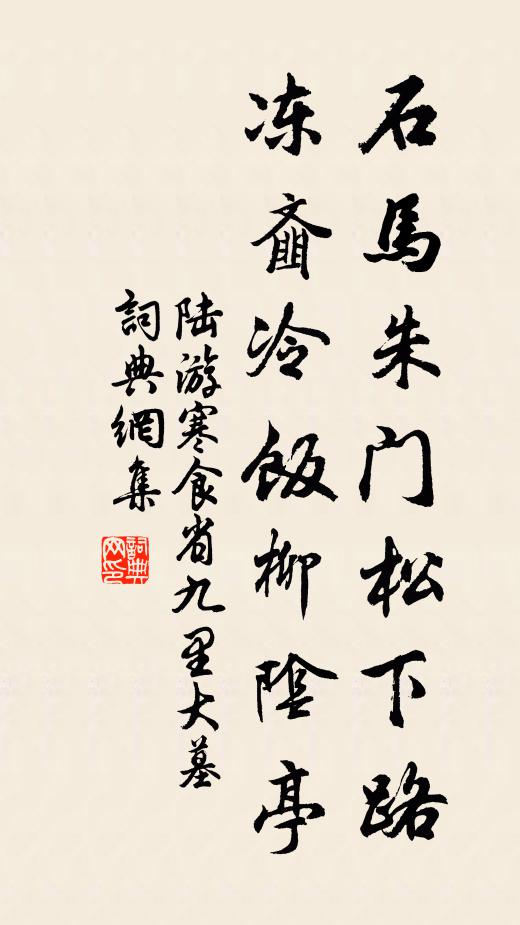 石馬朱门松下路
冻齑冷飯柳陰亭
陆游寒食省九里大墓
詞典網集
詞典網印